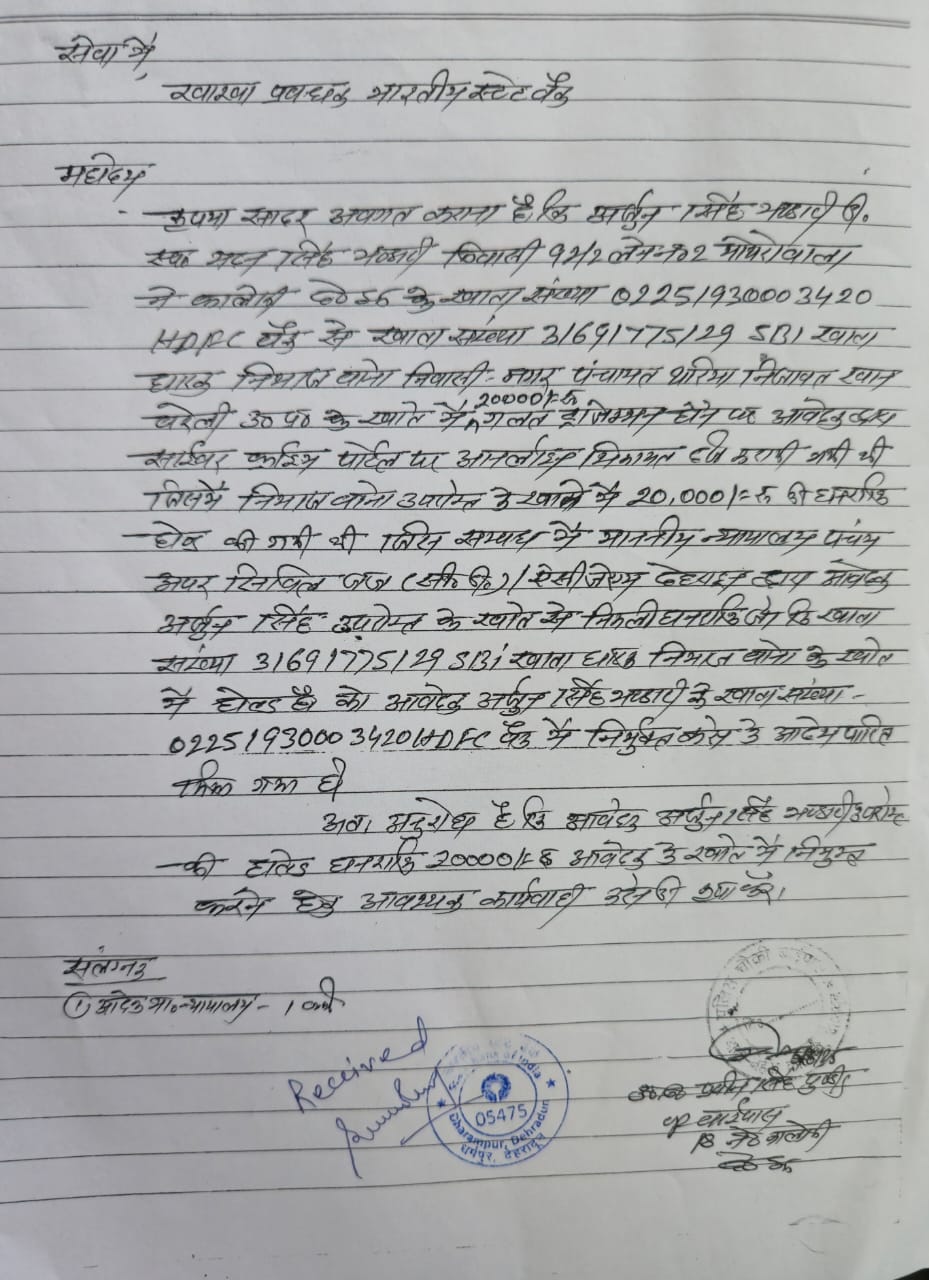 सेवा में,
शाखा प्रबन्धक भारतीय स्टेट बैंक
महोदय
कृपया सादर अवगत कराना है कि अर्जुन सिंह भण्डारी पु.
स्व० मदन सिंह भण्डारी निवासी 92/2 लेन न०2 मोथरोवाला
के खाता संख्या 02251930003420
HDFC बैंक से खाता संख्या 31691775129 SBI खाता
धारक निवासी- नगर पंचायत
20000/-रु
बरेली उ० प्र० के खाते में गलत ट्रांजेक्शन होने पर आवेदक द्वारा
साईबर क्राईम पोर्टल पर आनलाईन शिकायत दर्ज करायी गयी थी
जिसमें उपरोक्त के खाते में 20,000/-रु की धनराशि
होल्ड की गयी थी जिस सम्बन्ध में माननीय न्यायालय पंचम
अपर सिविल जज (सी० डि०)/एसीजेएम देहरादून द्वारा आवेदक
अर्जुन सिंह उपरोक्त के खाते से निकली धनराशि जो कि खाता
संख्या 31691775129 SBI खाता धारक के खाते
में होल्ड है। को आवेदक अर्जुन सिंह भण्डारी के खाता संख्या -
02251930003420 HDFC बैंक में निर्मुक्त करने के आदेश पारित
किया गया है
अतः अनुरोध है कि आवेदक अर्जुन सिंह भण्डारी उपरोक्त
की होल्ड धनराशि 20000/-रु आवेदक के खाते में निमुक्त
करने हेतु आवश्यक कार्यवाही करने की कृपा करें।
संलग्नक
① आदेश मा० न्यायालय - 1 वर्क
Received
Bank of India
05475
Dharampur, Dehradun
धर्मपुर, देहरादून
पुलिस चौकी बाईपास